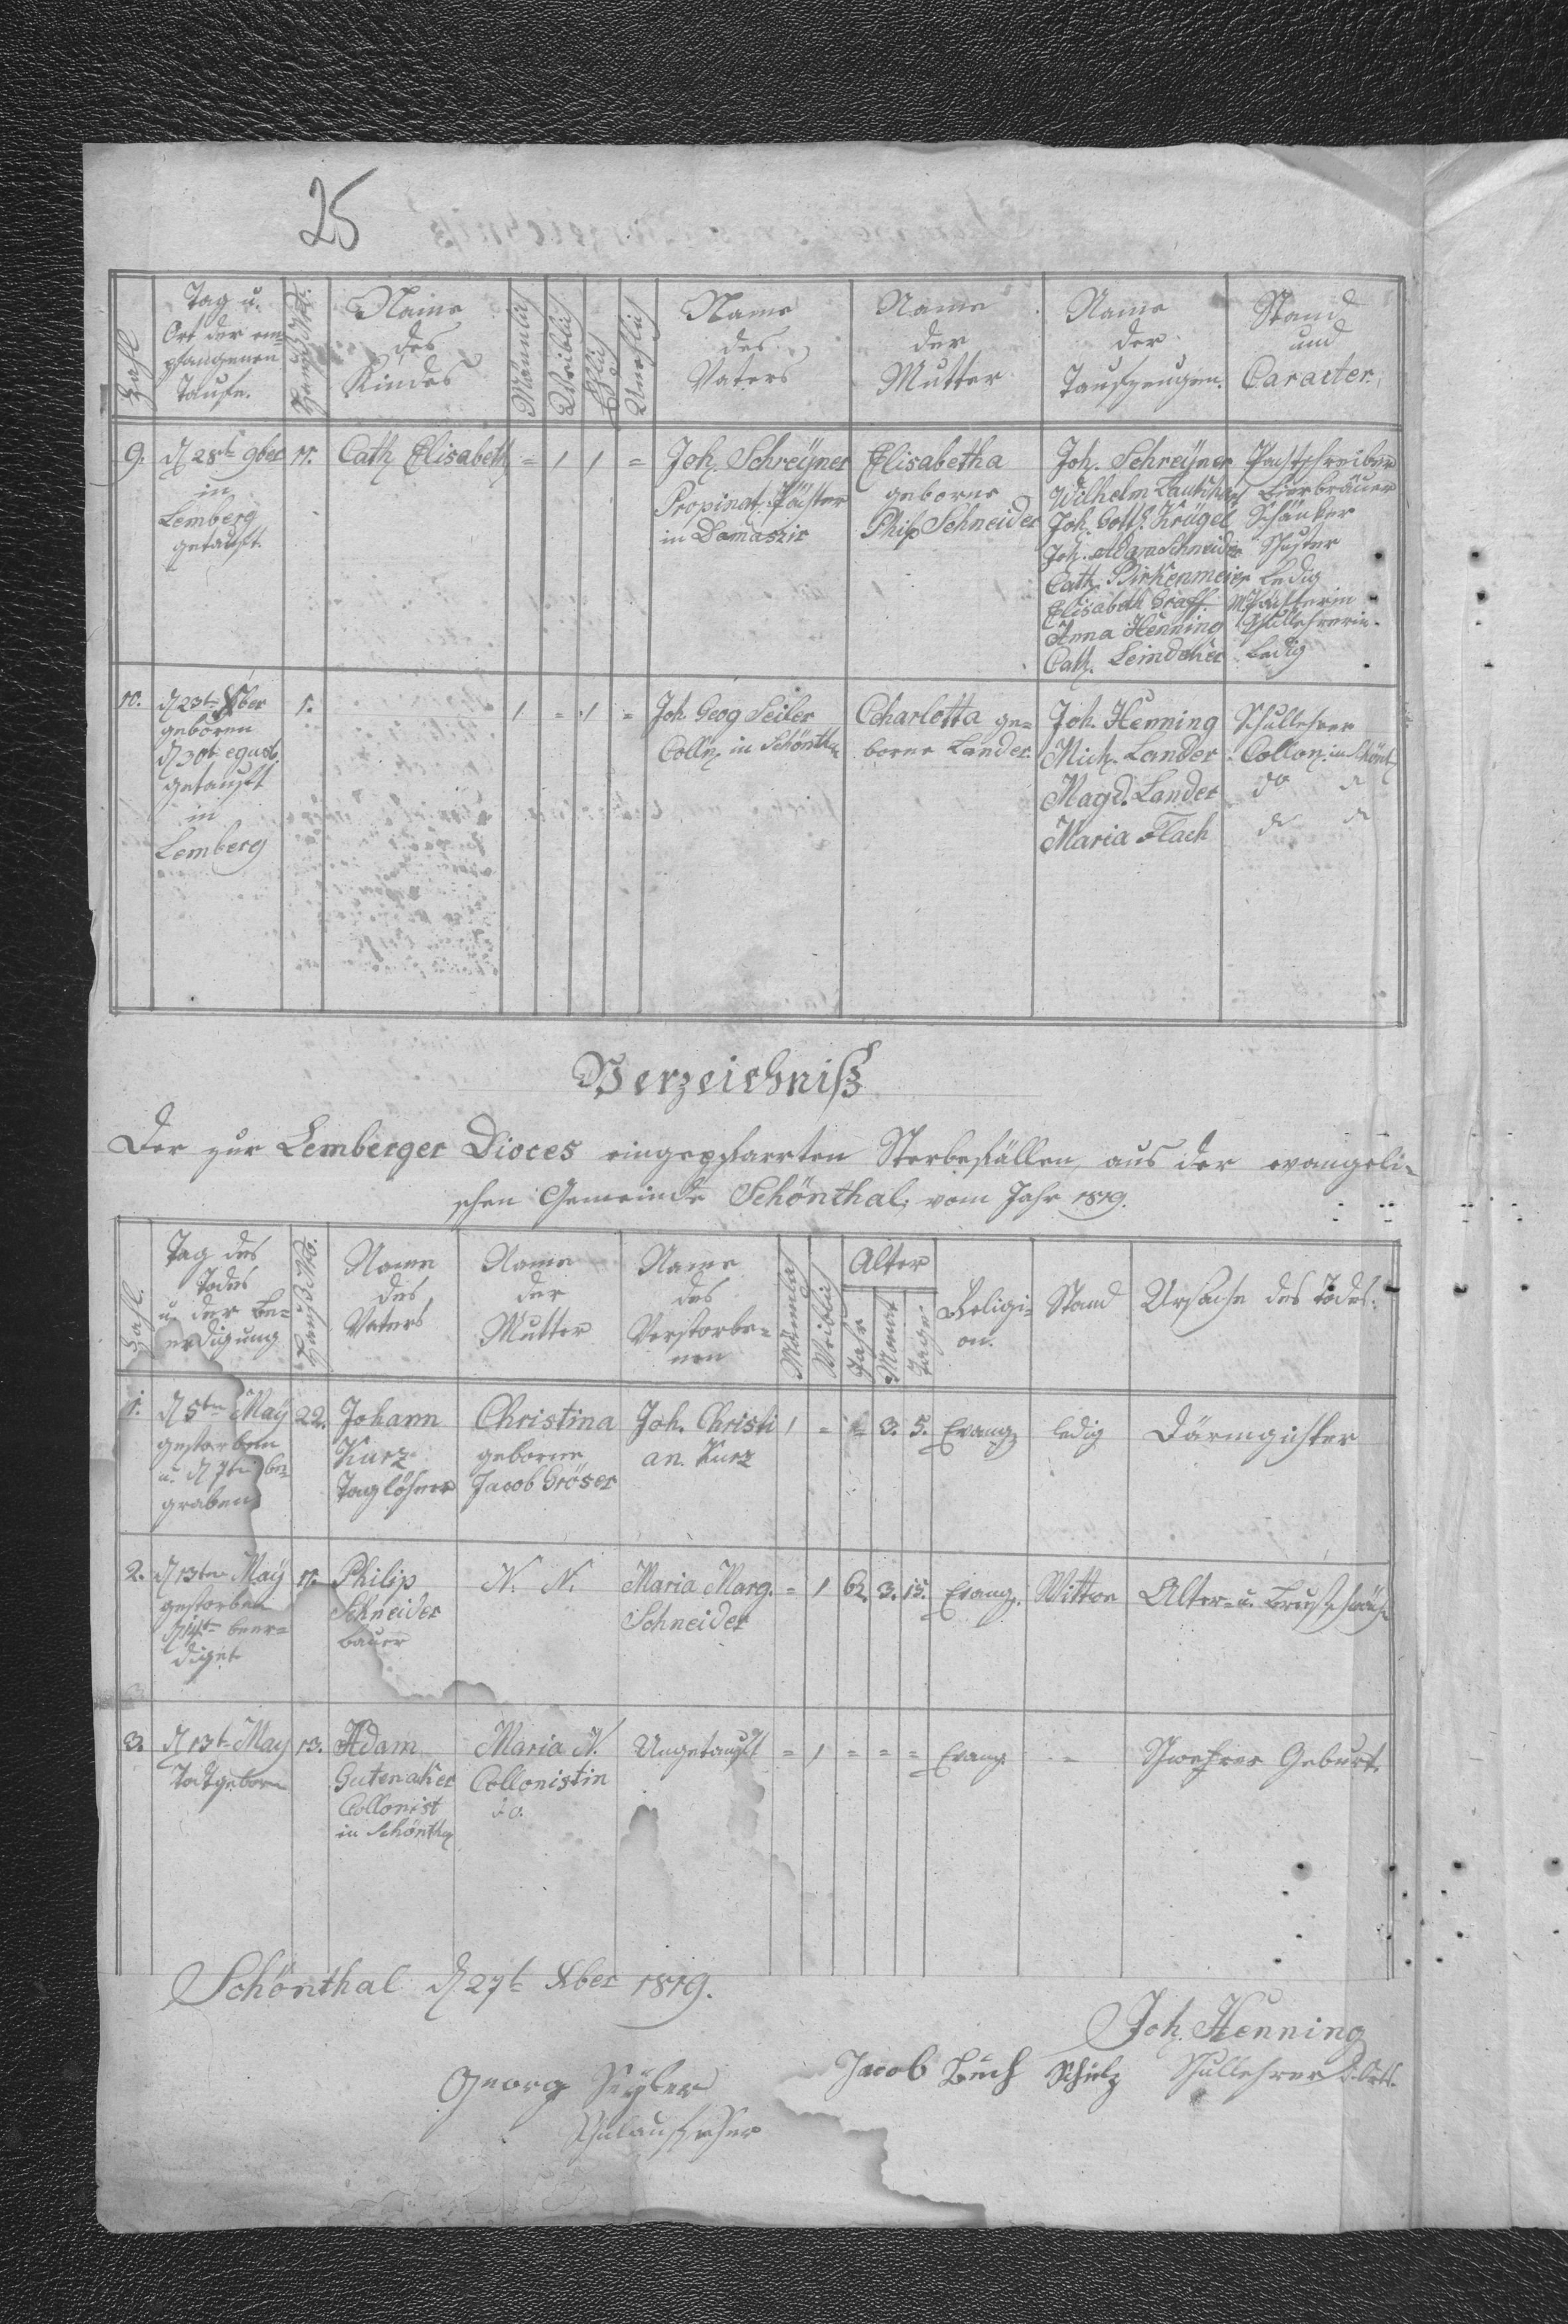 25
Zahl
Tag u.
Ort der em-
pfangenen
Taufe.
Hauß Nro.
Name
des
Kindes
Mänlich
Weiblich
Ehlich
Unehlich
Name
des
Vaters
Name
der
Mutter
Name
der
Taufzeugen.
Stand
und
Caracter.
9.
d 28t 9ber
in
Lemberg
getauft
11.
Cath Elisabeth
= 1 1 =
Joh. Schreyner
Propinat. Pächter
in Damaszir
Elisabetha
geborne
Philip Schneider
Joh. Schreyner
Wilhelm
Joh. Gottf. Krügel
Joh. Adam Schneider
Cath. Birkenmeier
Elisabeth Graff.
Anna Henning
Cath.
Pachtschreiber
Bierbräuer
Schänker
Schuster
Ledig
Schullehrerin.
Ledig
10.
d 23t Xber
geboren
d 30t
getauft
in
Lemberg
1.
1 = 1 =
Joh. Georg Seiler
Collon. in Schönthal
Charlotta ge=
borne Lander.
Joh. Henning
Mich. Lander
Magd. Lander
Maria Flach
Schullehrer
Collon. in Schönth
do do
do do
Verzeichniß
Der zur Lemberger Dioces eingepfarrten Sterbefällen, aus der evangeli=
schen Gemeinde Schönthal, vom Jahr 1819.
Zahl.
Tag des
Todes
u. der Be=
erdigung
Hauß Nro.
Name
des
Vaters
Name
der
Mutter
Name
des
Verstorbe=
nen
Mänlich
Weiblich
Alter
Jahr
Monat
Tage
Religi=
on.
Stand
Ursache des Todes.
1.
d 5ten May
gestorben
u. d 7ten be=
graben
22.
Johann
Kurz
Taglöhner
Christina
geborne
Jacob Gröser
Joh. Christi
an. Kurz
1 = = 3. 5.
Evang.
ledig
Därmgichter
2.
d 13ten May
gestorben
d 14ten beer=
diget
11.
Philip
Schneider
bauer
N. N.
Maria Marg.
Schneider
= 1 62 3. 15.
Evang.
Wittwe
Alter= u. Brustschwäche
3.
d 13t May
Todgeboren
13.
Adam
Gutenaker
Collonist
in Schönthal
Maria N.
Collonistin
do.
Ungetauft
= 1 = = =
Evang.
=
Schwehrer Geburt.
Schönthal d 27t Xber 1819.
Joh. Henning
Jacob Buch Schulz Schullehrer
Georg Seyler
Schulaufseher